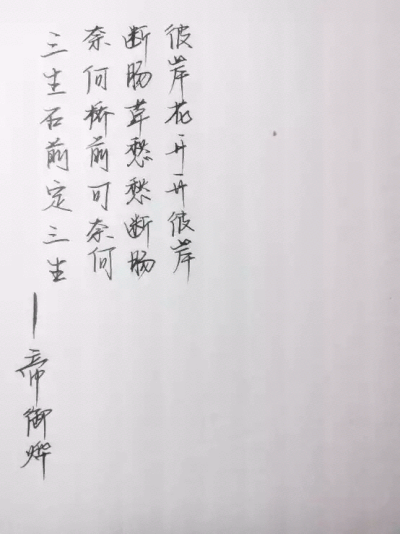 彼岸花开开彼岸
断肠草愁愁断肠
奈何桥前可奈何
三生石前定三生
—帝御烨